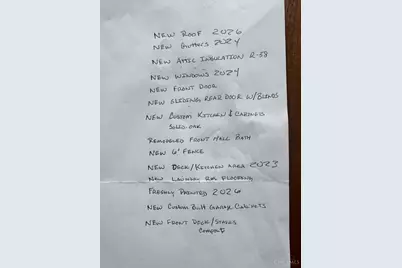 NEW ROOF 2026
NEW GUTTERS 2024
NEW ATTIC INSULATION R-58
NEW WINDOWS 2024
NEW FRONT DOOR
NEW SLIDING REAR DOOR W/BLINDS
NEW CUSTOM KITCHEN & CABINETS
SOLID OAK
REMODELED FRONT HALL BATH
NEW 6' FENCE
NEW DECK/KITCHEN AREA 2023
NEW LAUNDRY RM FLOORING
FRESHLY PAINTED 2026
NEW CUSTOM BUILT GARAGE CABINETS
NEW FRONT DECK/STAIRS